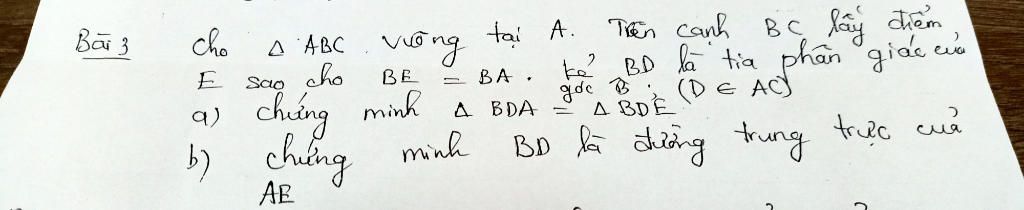 Bài 3 cho Δ ABC vuông tại A. Trên cạnh BC lấy điểm
E sao cho BE = BA. kẻ BD là tia phân giác của
góc B. (D ∈ AC)
a) chứng minh Δ BDA = Δ BDE
b) chứng minh BD là đường trung trực của
AE